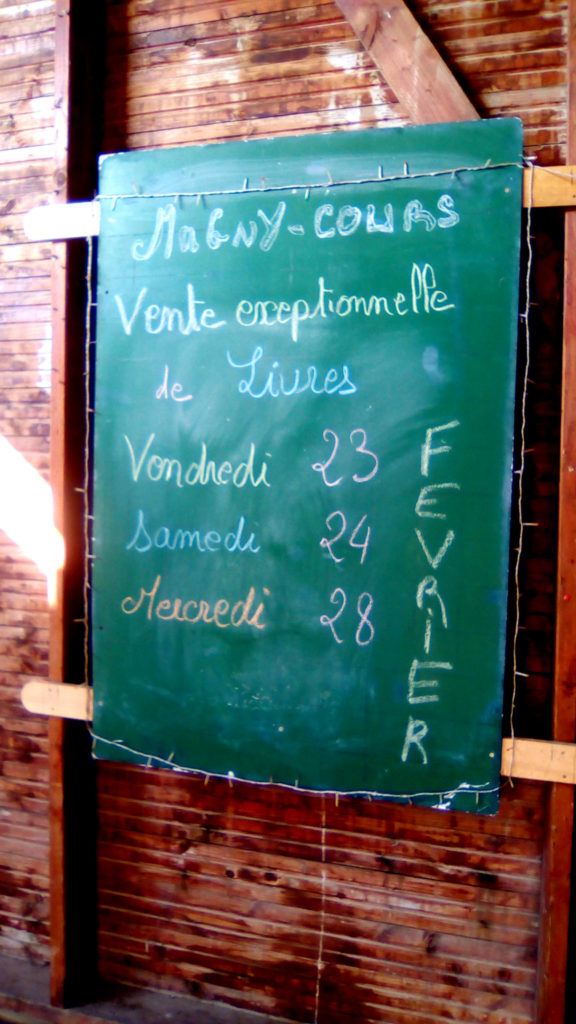 MaGNY-COURS
Vente exceptionnelle
de Livres
Vendredi 23
Samedi 24
Mercredi 28
FEVRiER